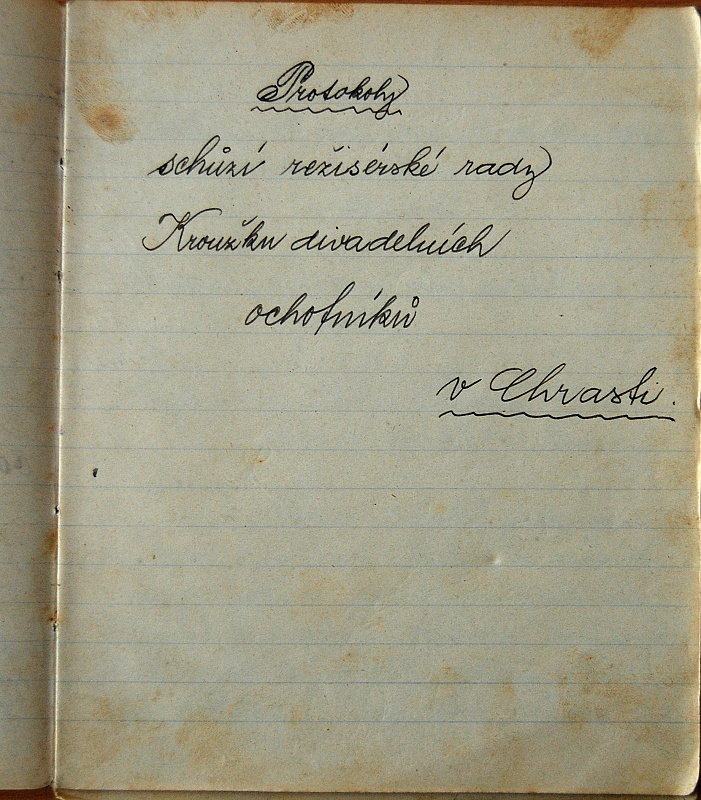 Protokoly
schůzí režisérské rady
Kroužku divadelních
ochotníků
v Chrasti.